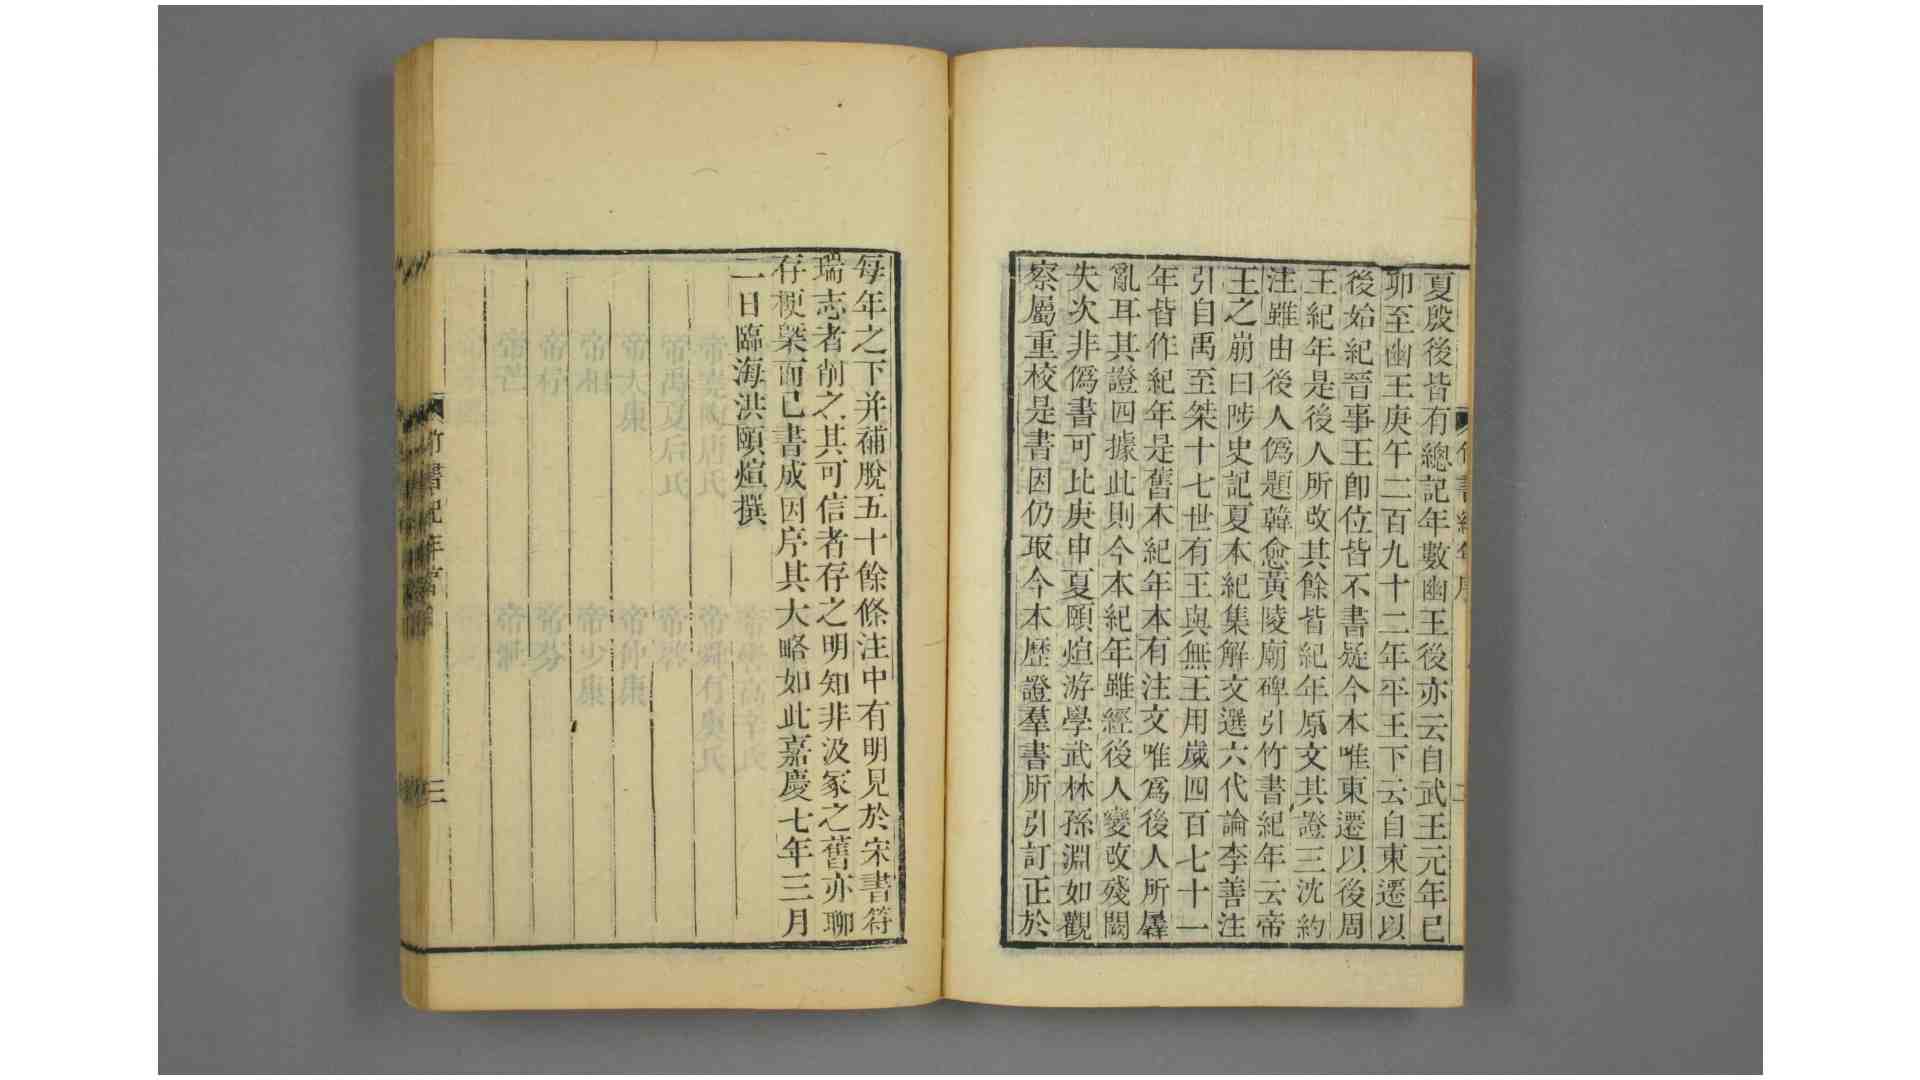 夏殷後皆有總記年數幽王後亦云自武王元年己
卯至幽王庚午二百九十二年平王下云自東遷以
後始紀晉事王即位皆不書疑今本唯東遷以後周
王紀年是後人所改其餘皆紀年原文其證三沈約
注雖由後人僞題韓愈黃陵廟碑引竹書紀年云帝
王之崩曰陟史記夏本紀集解文選六代論李善注
引自禹至桀十七世有王與無王用歲四百七十一
年皆作紀年是舊本紀年本有注文唯爲後人所羼
亂耳其證四據此則今本紀年雖經後人變改殘闕
失次非僞書可比庚申夏頤煊游學武林孫淵如觀
察屬重校是書因仍取今本歷證羣書所引訂正於
每年之下并補脫五十餘條注中有明見於宋書符
瑞志者削之其可信者存之明知非汲冢之舊亦聊
存梗槩而已書成因序其大略如此嘉慶七年三月
二日臨海洪頤煊撰
竹書紀年序
三